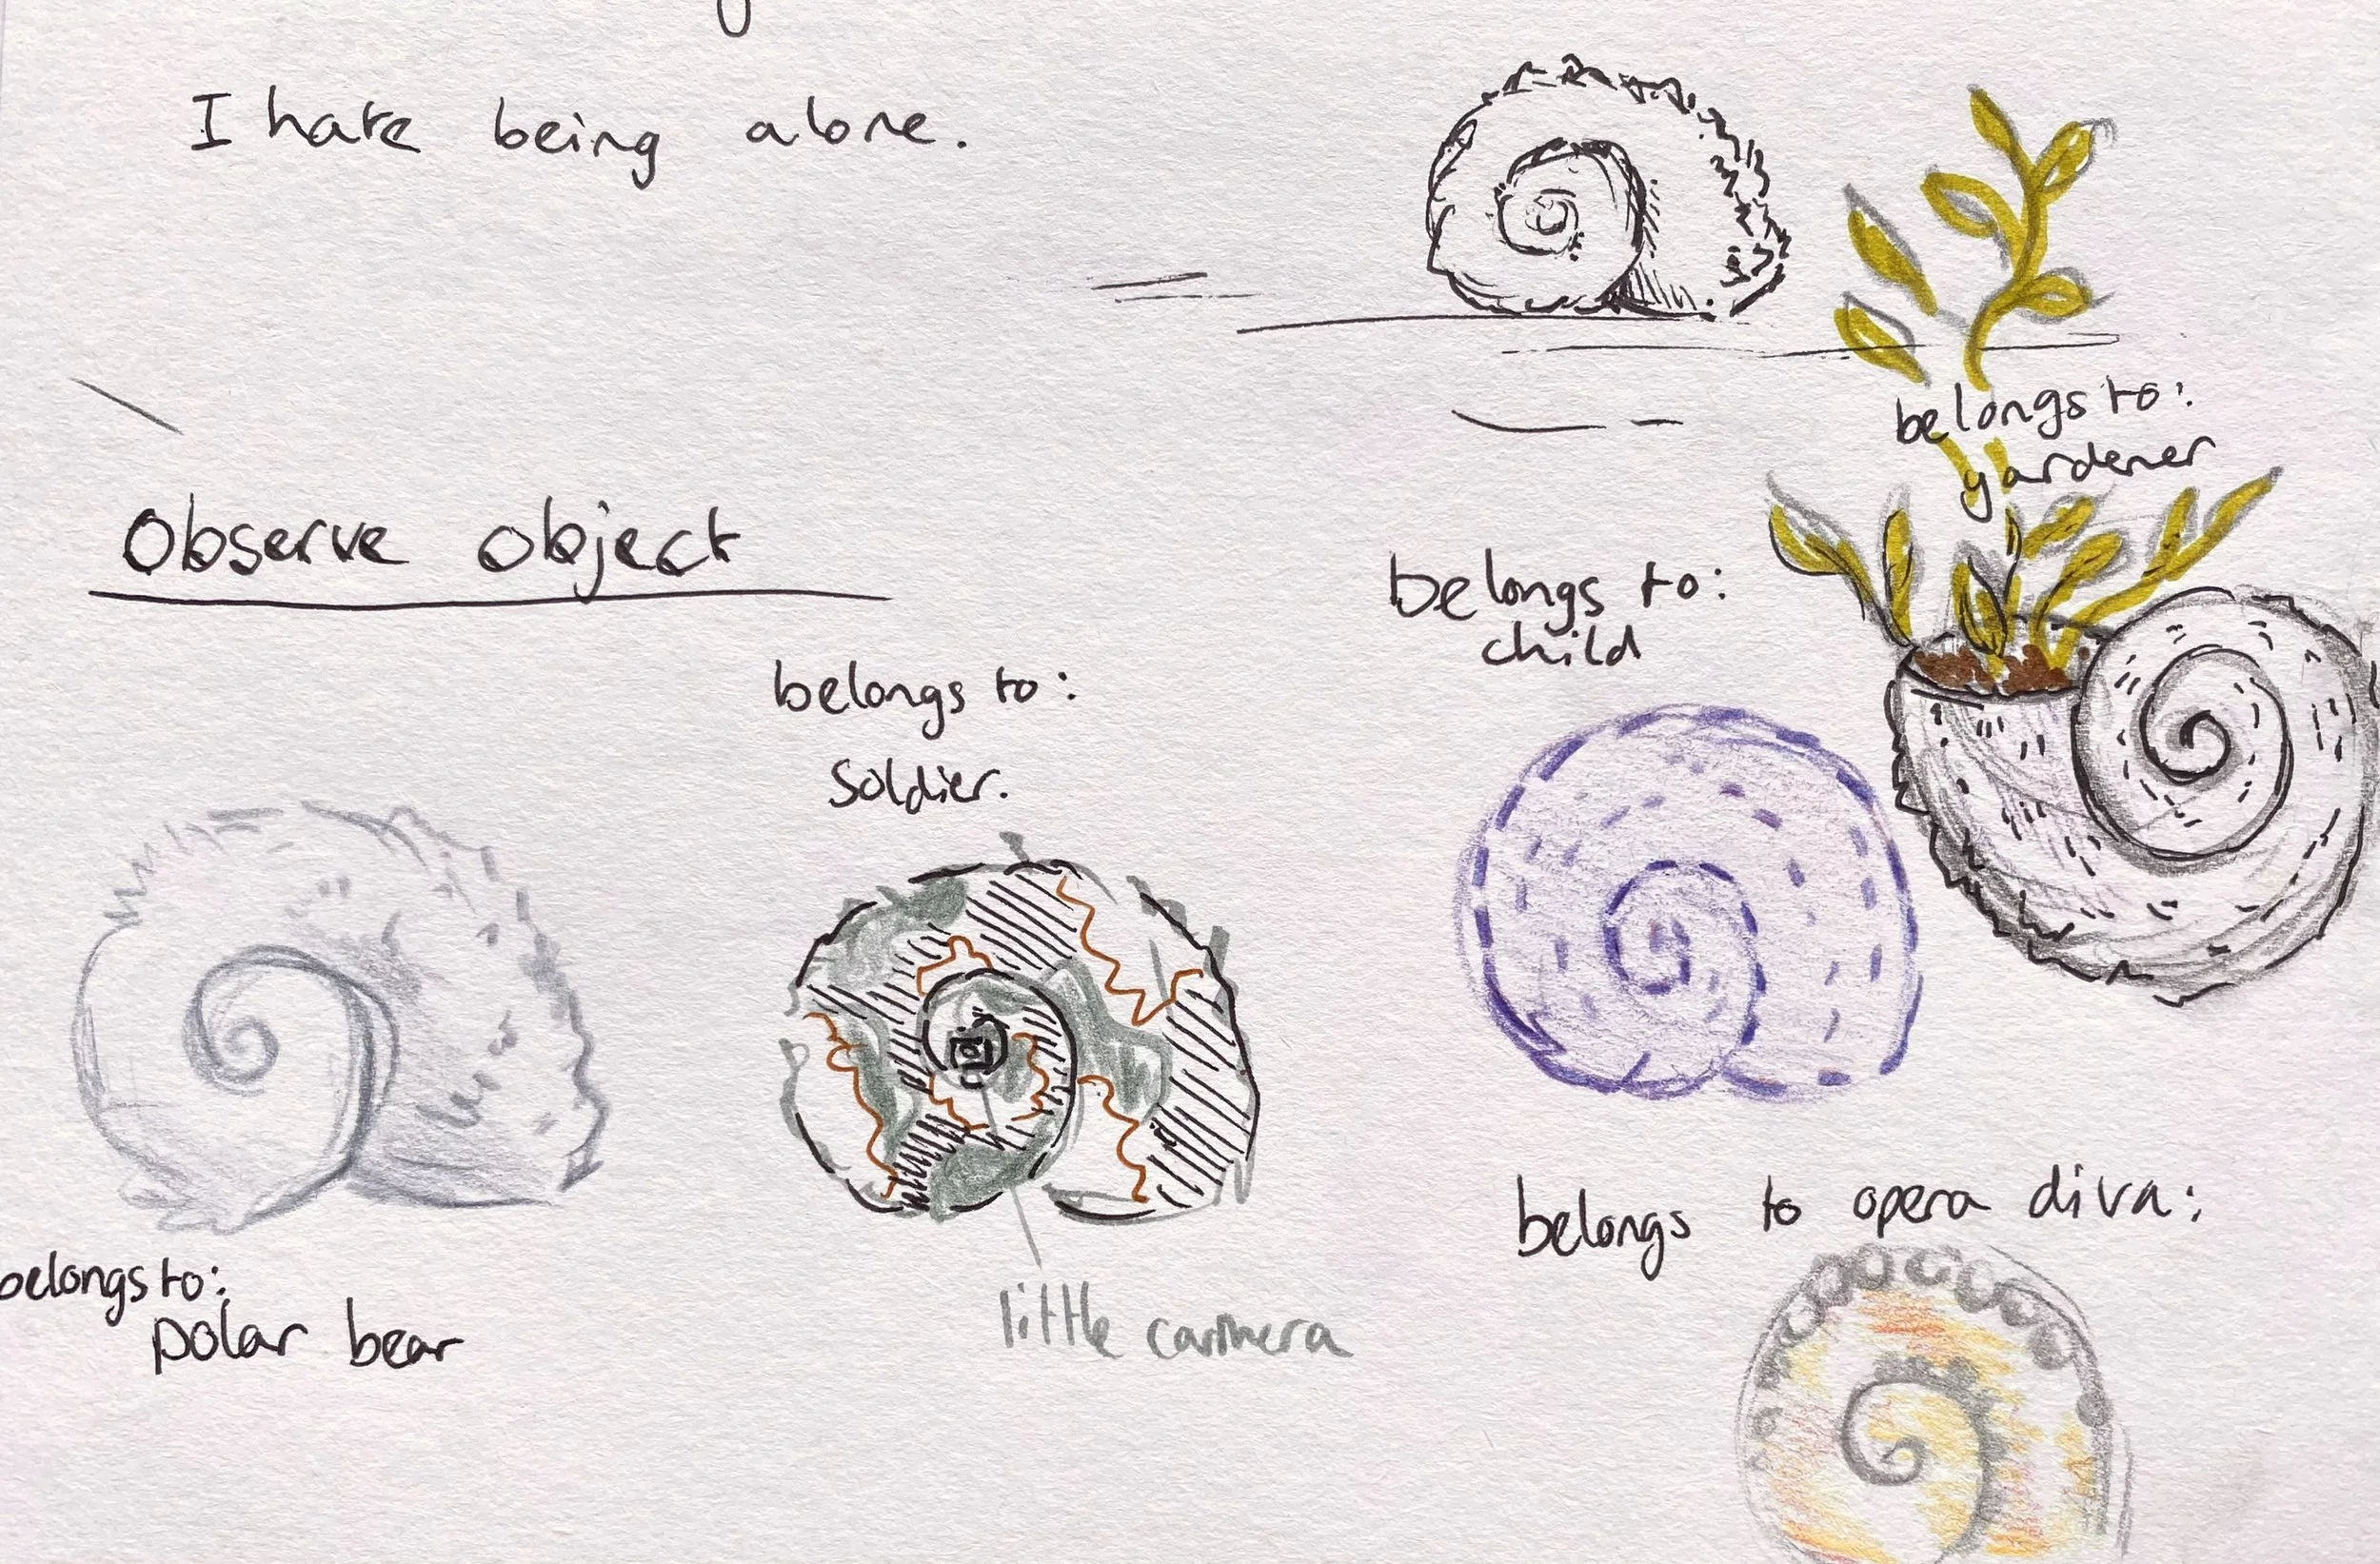 I hate being alone.
belongs to:
gardener
Observe object
belongs to:
child
belongs to:
soldier.
belongs to opera diva:
belongs to:
polar bear
little camera